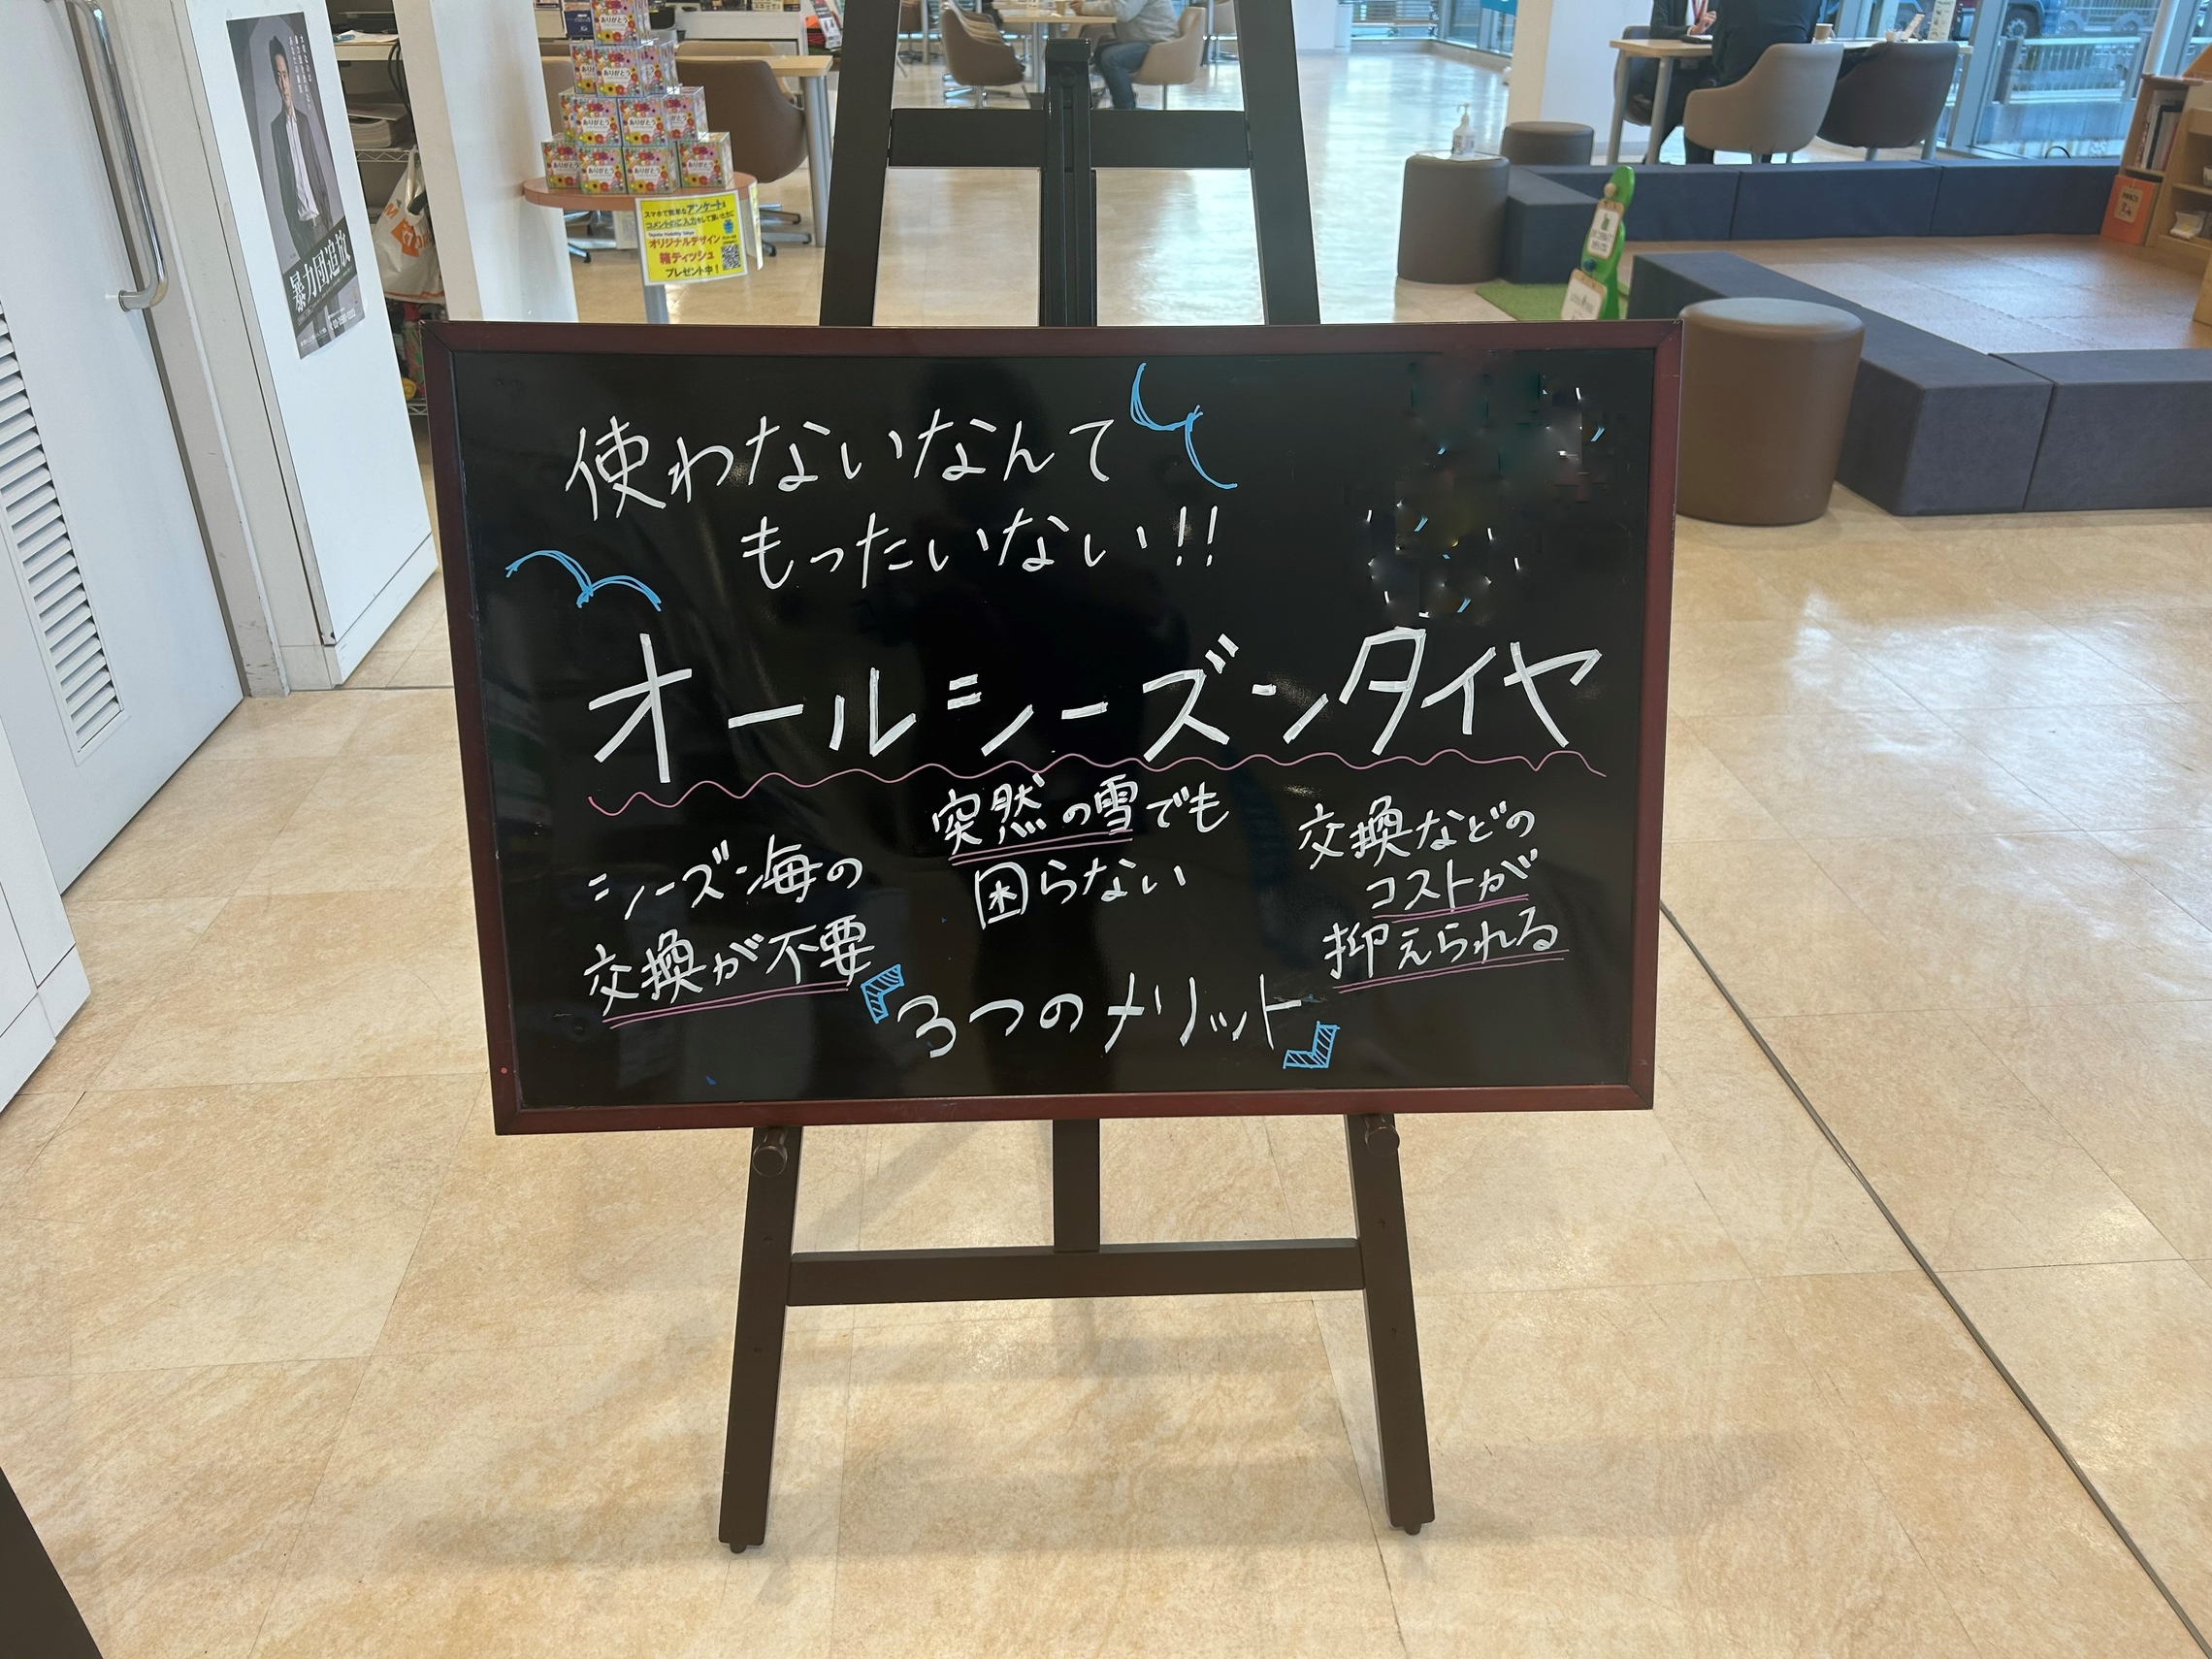 使わないなんて
もったいない!!
オールシーズンタイヤ
シーズン毎の
交換が不要
突然の雪でも
困らない
交換などの
コストが
抑えられる
『3つのメリット』
暴力団追放
ありがとう
ありがとう
ありがとう
ありがとう
ありがとう
ありがとう
スマホで簡単なアンケートを
オリジナルデザイン
箱ティッシュ
プレゼント中!